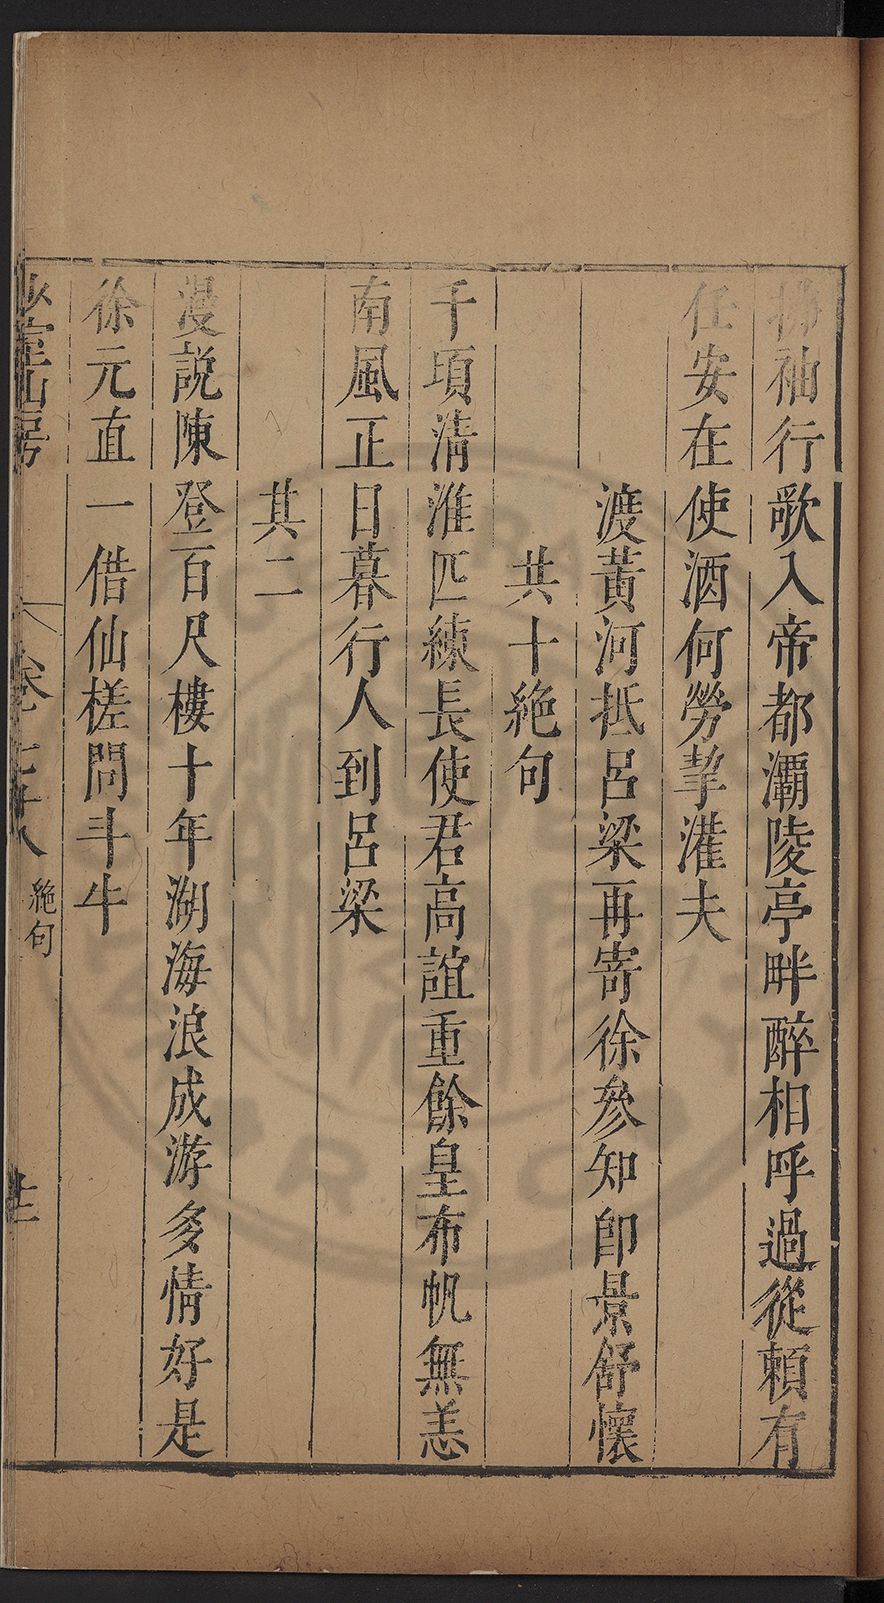 拂袖行歌入帝都灞陵亭畔醉相呼過從賴有
任安在使酒何勞挚灌夫
渡黃河抵呂梁再寄徐參知卽景舒懷
共十絶句
千頃清淮匹練長使君高誼重餘皇布帆無恙
南風正日暮行人到呂梁
其二
漫說陳登百尺樓十年湖海浪成游多情好是
徐元直一借仙槎問斗牛
山房
卷
絶句